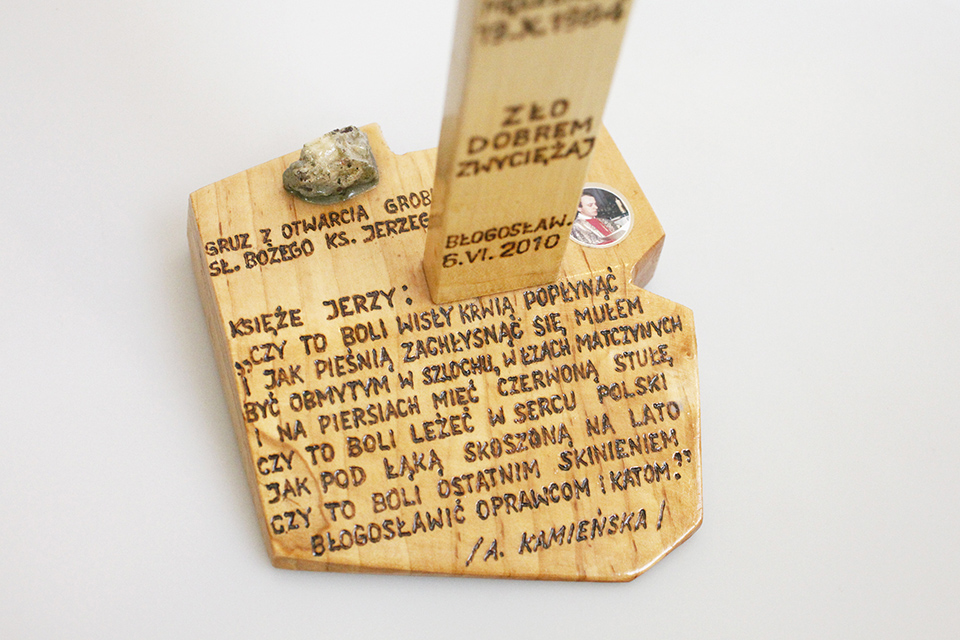 19.X.1984
ZŁO
DOBREM
ZWYCIĘŻAJ
BŁOGOSŁAW.
6.VI.2010
GRUZ Z OTWARCIA
SŁ. BOŻEGO KS.
KSIĘŻE JERZY:
„CZY TO BOLI WISŁY KRWIĄ POPŁYNĄĆ
I JAK PIEŚNIĄ ZACHŁYSNĄĆ SIĘ MUŁEM
BYĆ OBMYTYM W SZLOCHU, W ŁZACH MATCZYNYCH
I NA PIERSIACH MIEĆ CZERWONĄ STUŁĘ
CZY TO BOLI LEŻEĆ W SERCU POLSKI
JAK POD ŁĄKĄ SKOSZONĄ NA LATO
CZY TO BOLI OSTATNIM SKINIENIEM
BŁOGOSŁAWIĆ OPRAWCOM I KATOM?”
/A. KAMIEŃSKA/